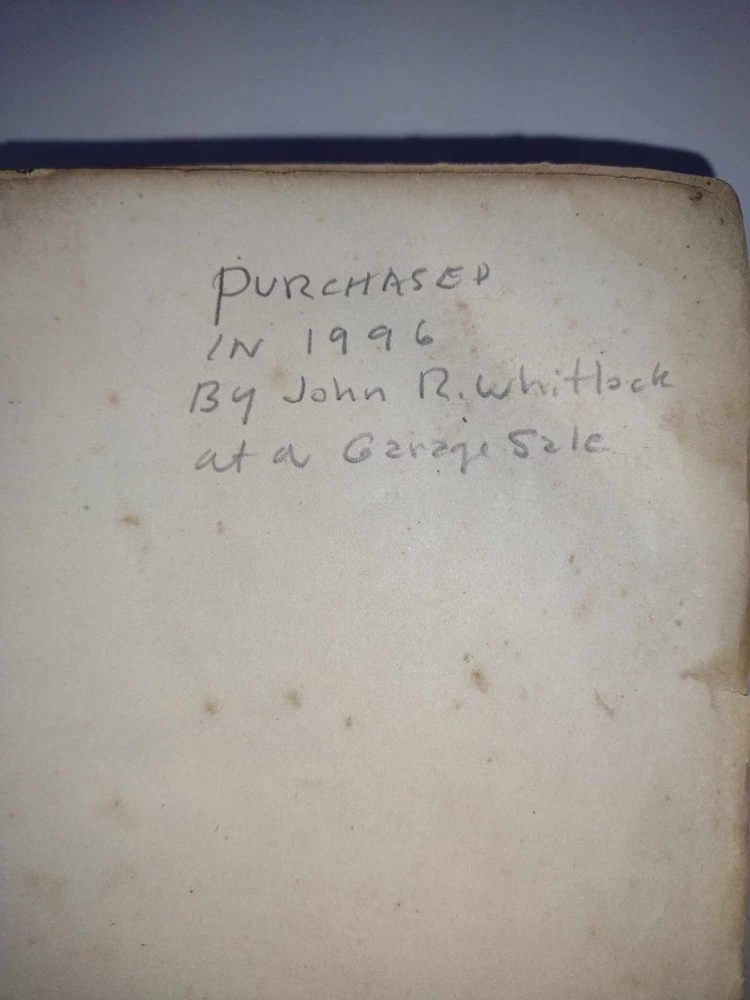 PURCHASED
IN 1996
By John R. Whitlock
at a Garage Sale